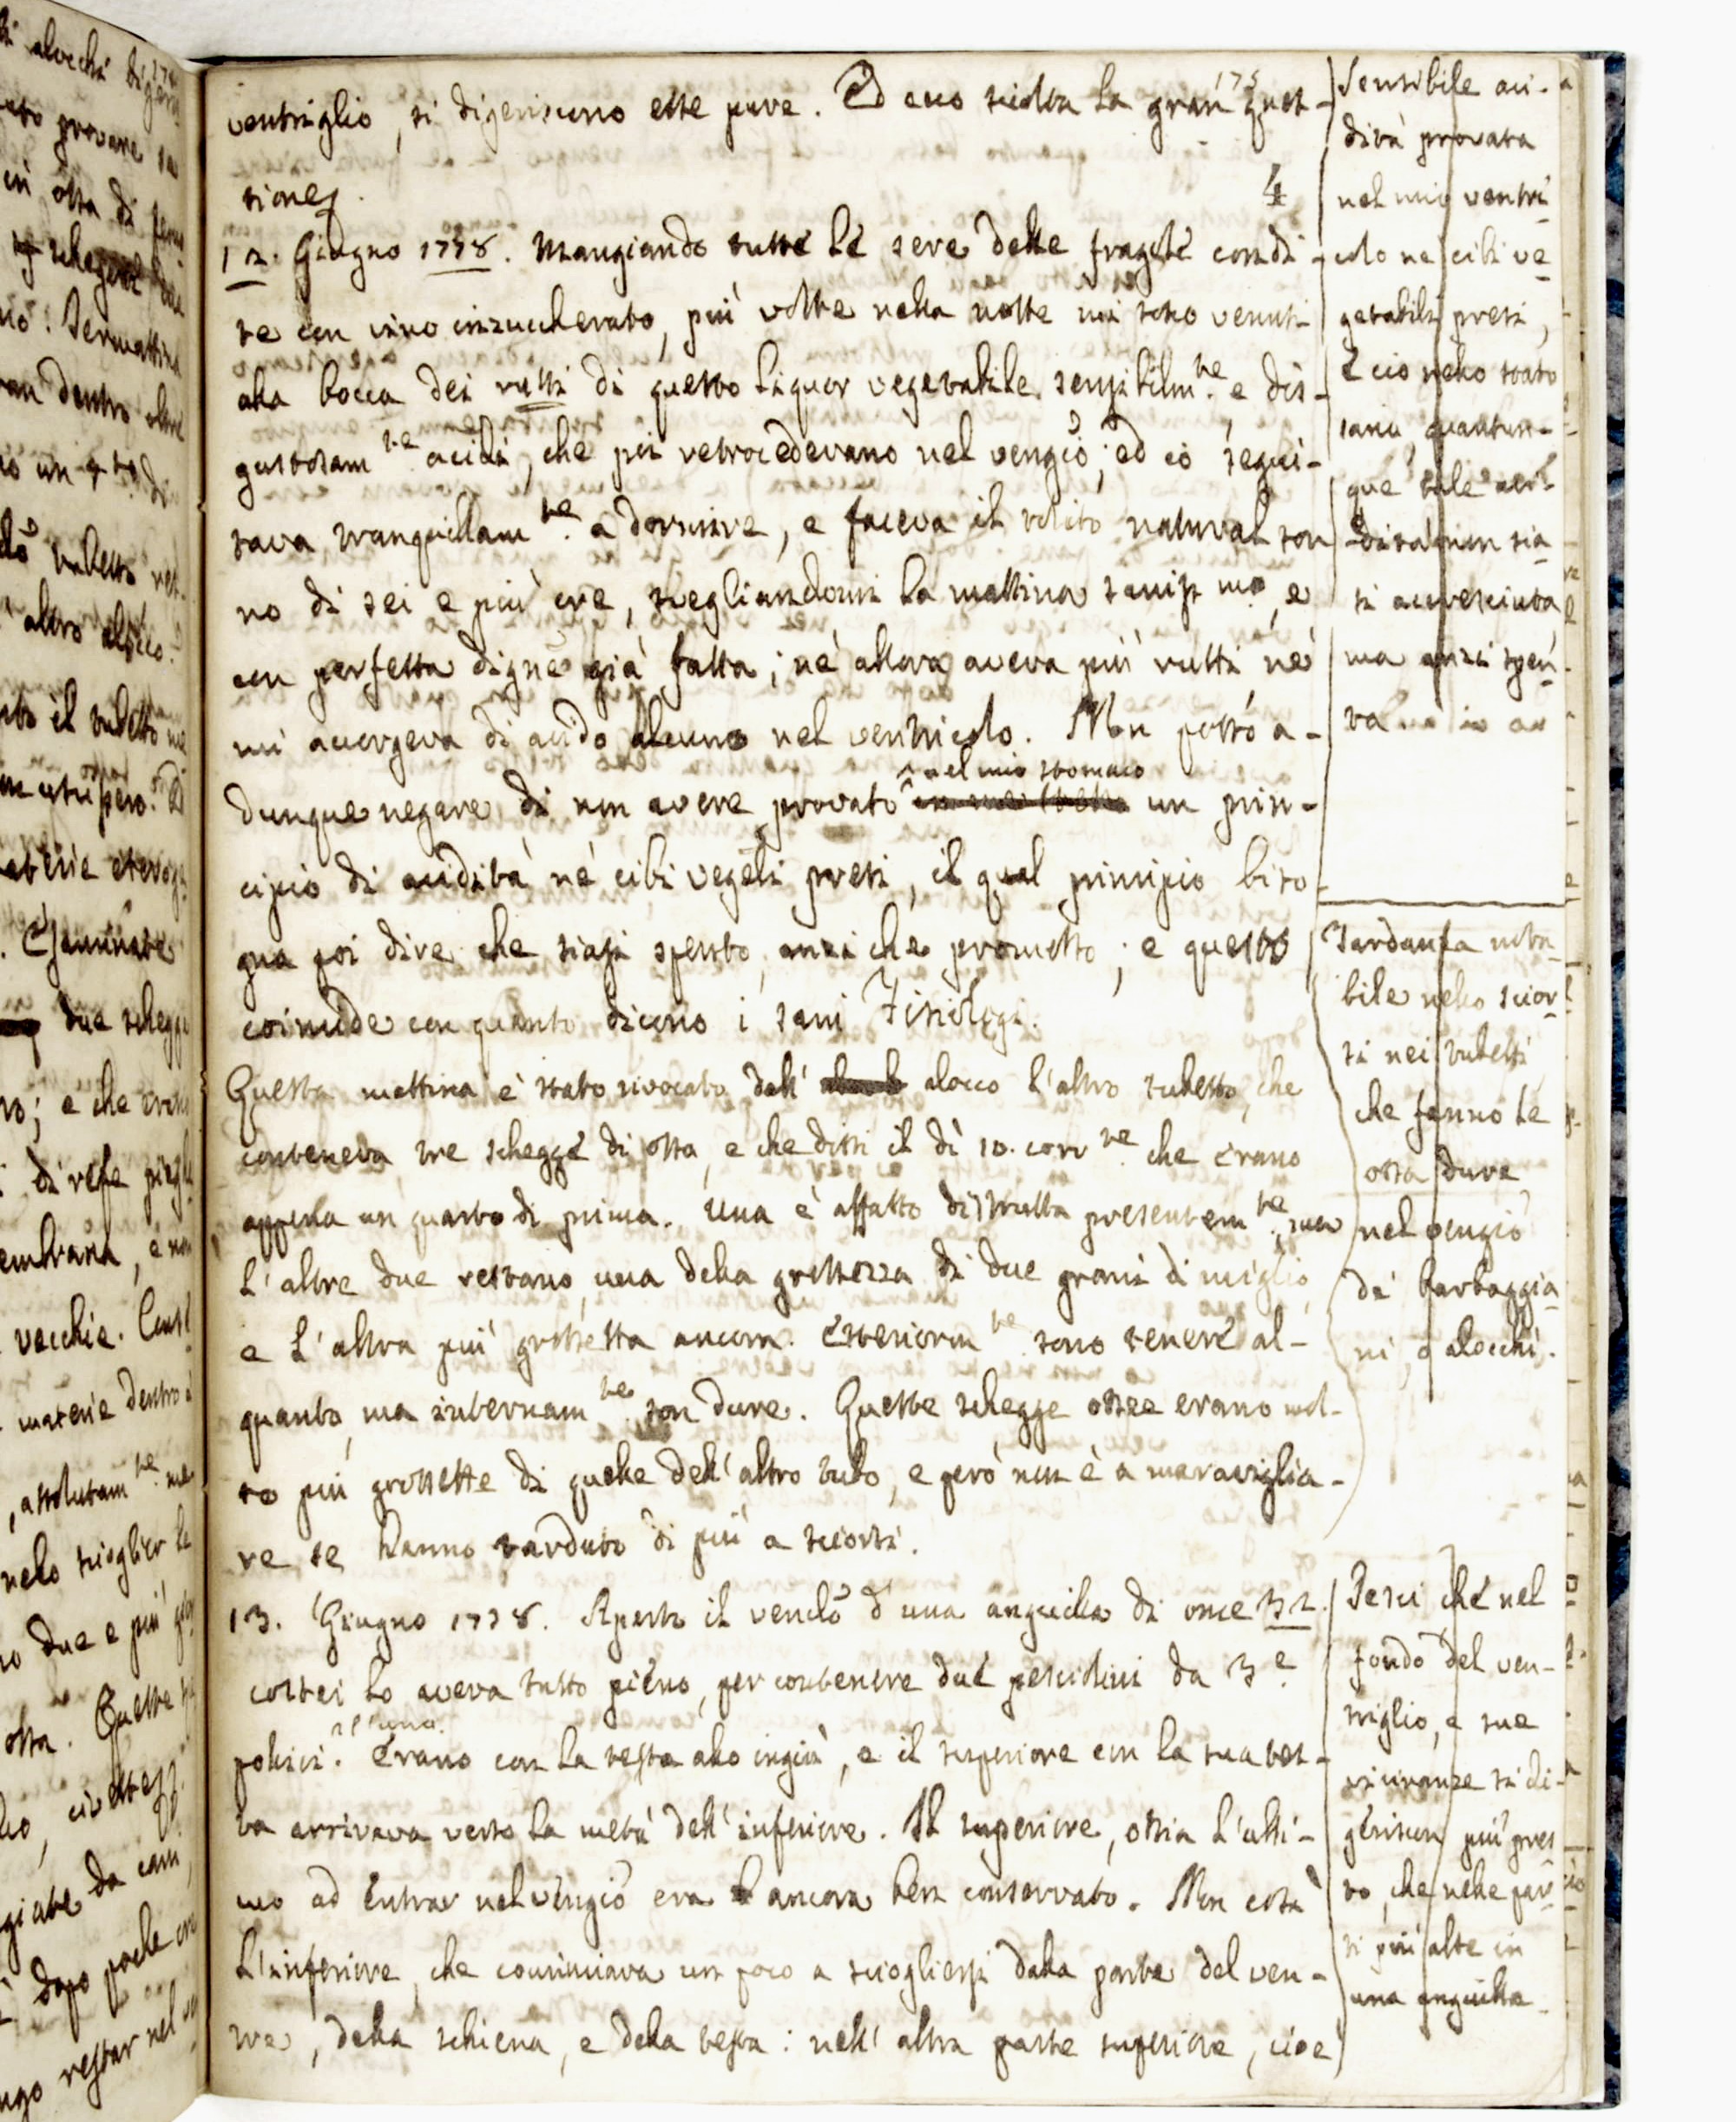 175
ventriglio, si digeriscono esse pure. Ed ecco sciolta la gran quest-
sione.
4
12. Giugno 1778. Mangiando tutte le sere delle fragole condi-
te con vino inzuccherato, più volte nella notte mi sono venuti
alla bocca dei rutti di questo liquor vegetabile sensibilmte. e dis-
gustosamte. acidi, che poi retrocedevano nel vengio; ed io segui-
tava tranquillamte. a dormire, e faceva il solito natural son
no di sei e più ore, svegliandomi la mattina saniss.mo, e
con perfetta digne già fatta; nè allora aveva più rutti nè
mi accorgeva di acido alcuno nel ventricolo. Non posso a-
dunque negare di non avere provato nel mio stomaco un prin-
cipio di acidità ne' cibi vegeli presi, il qual principio biso-
gna poi dire che siasi spento, anzi che promosso; e questo
coincide con quanto dicono i sani Fisiologi.
Questa mattina è stato rivocato dall' alocco l'altro tubetto, che
conteneva tre schegge di ossa, e che dissi il dì 10. corrte. che erano
appena un quarto di prima. Una è affatto distrutta presentemte.,
L'altre due restano, una della grossezza di due grani di miglio,
e l'altra più grossetta ancora. Esteriormte. sono tenere al-
quanto, ma internamte. son dure. Queste schegge ossee erano mol-
to più grossette di quelle dell'altro tubo, e però non è a maraviglia-
re se hanno tardato di più a sciorsi.
13. Giugno 1778. Aperto il vencło d'una anguilla di once 32.
costei lo aveva tutto pieno, per contenere due pesciolini da 3e.
pollici l'uno. Erano con la testa allo ingiù, e il superiore con la sua tes-
ta arrivava verso la metà dell'inferiore. Il superiore, ossia l'ulti-
mo ad entrar nel vengio era ancora ben conservato. Non così
l'inferiore, che cominciava un poco a sciogliersi dalla parte del ven-
tre, della schiena, e della testa: nell'altra parte superiore, cioè
Sensibile aci-
dità provata
nel mio ventri
colo ne' cibi ve
getabili presi,
e ciò nello stato
sano, quantun-
que tale aci-
dità non sia
si accresciuta
ma anzi spen
ta
Tardanza nota
bile nello scior
si nei tubetti
che fanno le
ossa dure
nel vengio
de' barbaggia
ni, o alocchi.
Pesci che nel
fondo del ven-
triglio, e sue
vicinanze si di-
geriscon più pres
to, che nelle par
ti più alte in
una anguilla